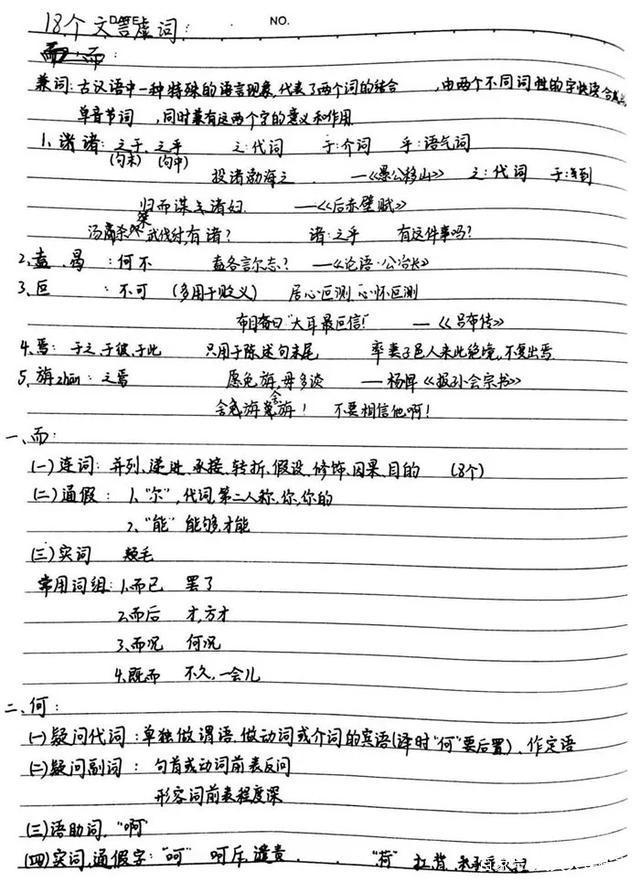 18个文言虚词: DATE NO.
兼词:古汉语中一种特殊的语言现象,代表了两个词的结合,由两个不同词性的字快读合成
单音节词,同时兼有这两个字的意义和作用
1、诸 诸:之于、之乎 之:代词 于:介词 乎:语气词
(句末) (句中)
投诸渤海之 —《愚公移山》 之:代词 于:到
归而谋诸妇 —《后赤壁赋》
汤 桀 武伐纣,有诸? 诸:之乎 有这件事吗?
2、盍、曷:何不 盍各言尔志? —《论语·公冶长》
3、叵:不可 (多用于贬义) 居心叵测、心怀叵测
布目备曰"大耳最叵信!" —《吕布传》
4、焉:于之、于彼、于此 只用于陈述句末尾 率妻子邑人来此绝境,不复出焉
5、旃zhān:之焉 愿勉旃,毋多谈 —杨恽《报孙会宗书》
舍旃舍旃! 不要相信他啊!
一、而:
(一)连词:并列、递进、承接、转折、假设、修饰、因果、目的 (8个)
(二)通假:1、"尔",代词,第二人称,你,你的
2、"能" 能够,才能
(三)实词 颊毛
常用词组:1、而已 罢了
2、而后 才,方才
3、而况 何况
4、既而 不久,一会儿
二、何:
(一)疑问代词:单独做谓语、做动词或介词的宾语(译时"何"要后置)、作定语
(二)疑问副词:句首或动词前表反问
形容词前表程度深
(三)语助词,"啊"
(四)实词,通假字:"呵" 呵斥,谴责 "荷" 扛,背